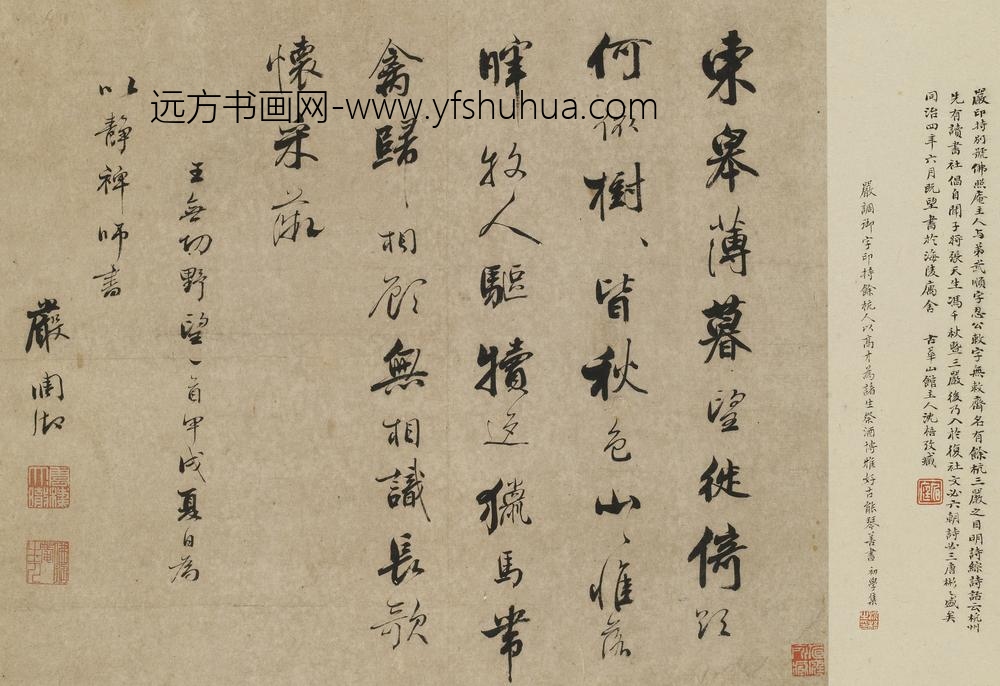 嚴印持別號佛照庵主人与弟武順字忍公敕字無敕齊名有餘杭三嚴之目明詩綜詩話云杭州
先有讀書社倡自聞子將張天生馮千秋暨三嚴後乃入於復社文必六朝詩必三唐彬〻盛矣
同治四年六月既望書於海陵寓舍 古華山館主人沈梧攷藏
嚴調御字印持餘杭人以高才為諸生祭酒博雅好古能琴善書 初學集
東皋薄暮望徙倚欲
何依樹〻皆秋色山〻惟落
暉牧人驅犢返獵馬帶
禽歸相顧無相識長歌
懷采薇
王無功野望一首甲戌夏日為
以靜禪師書
嚴調御
远方书画网-www.yfshuhua.com